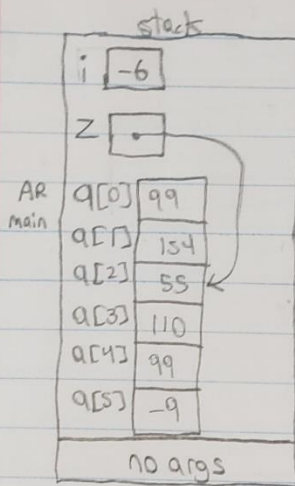 stack
i -6
z
AR
main
a[0] 99
a[1] 154
a[2] 55
a[3] 110
a[4] 99
a[5] -9
no args